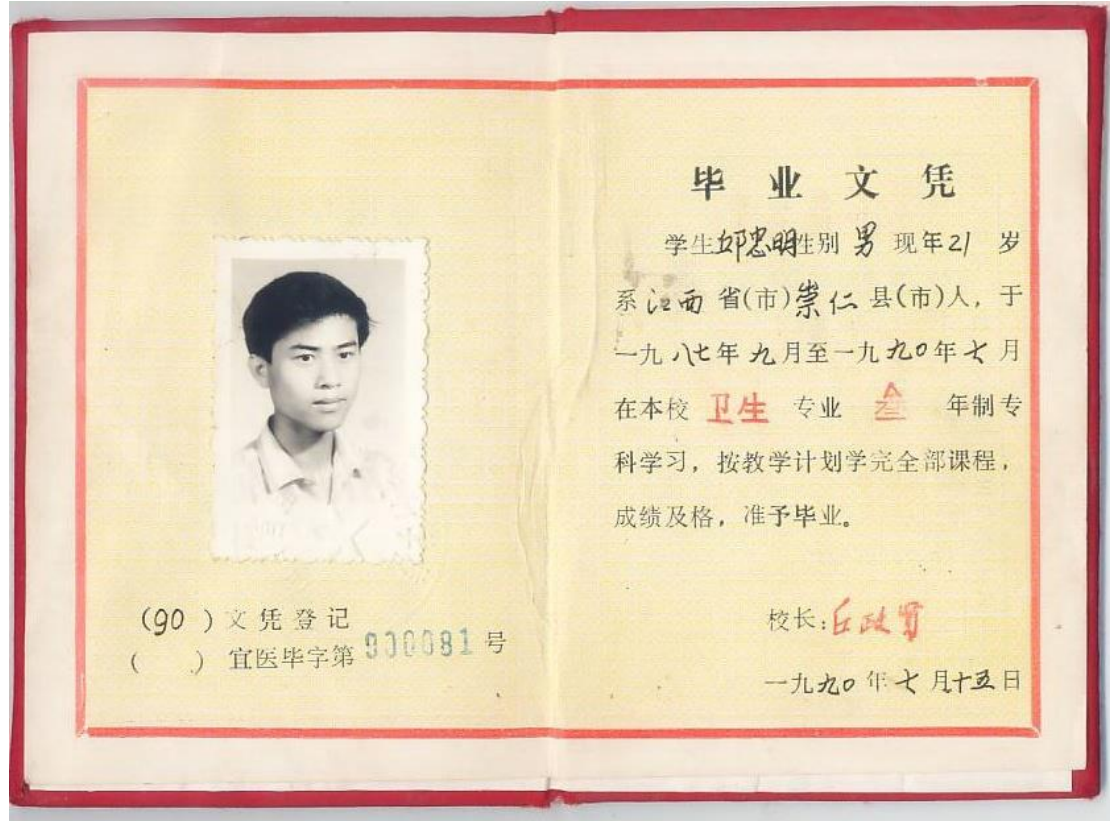 (90)文凭登记
(  )宜医毕字第900081号
毕业文凭
学生邱忠明性别 男 现年21 岁
系江西省(市)崇仁县(市)人，于
一九八七年九月至一九九〇年七月
在本校 卫生 专业 叁 年制专
科学习，按教学计划学完全部课程，
成绩及格，准予毕业。
校长：丘政贤
一九九〇年七月十五日